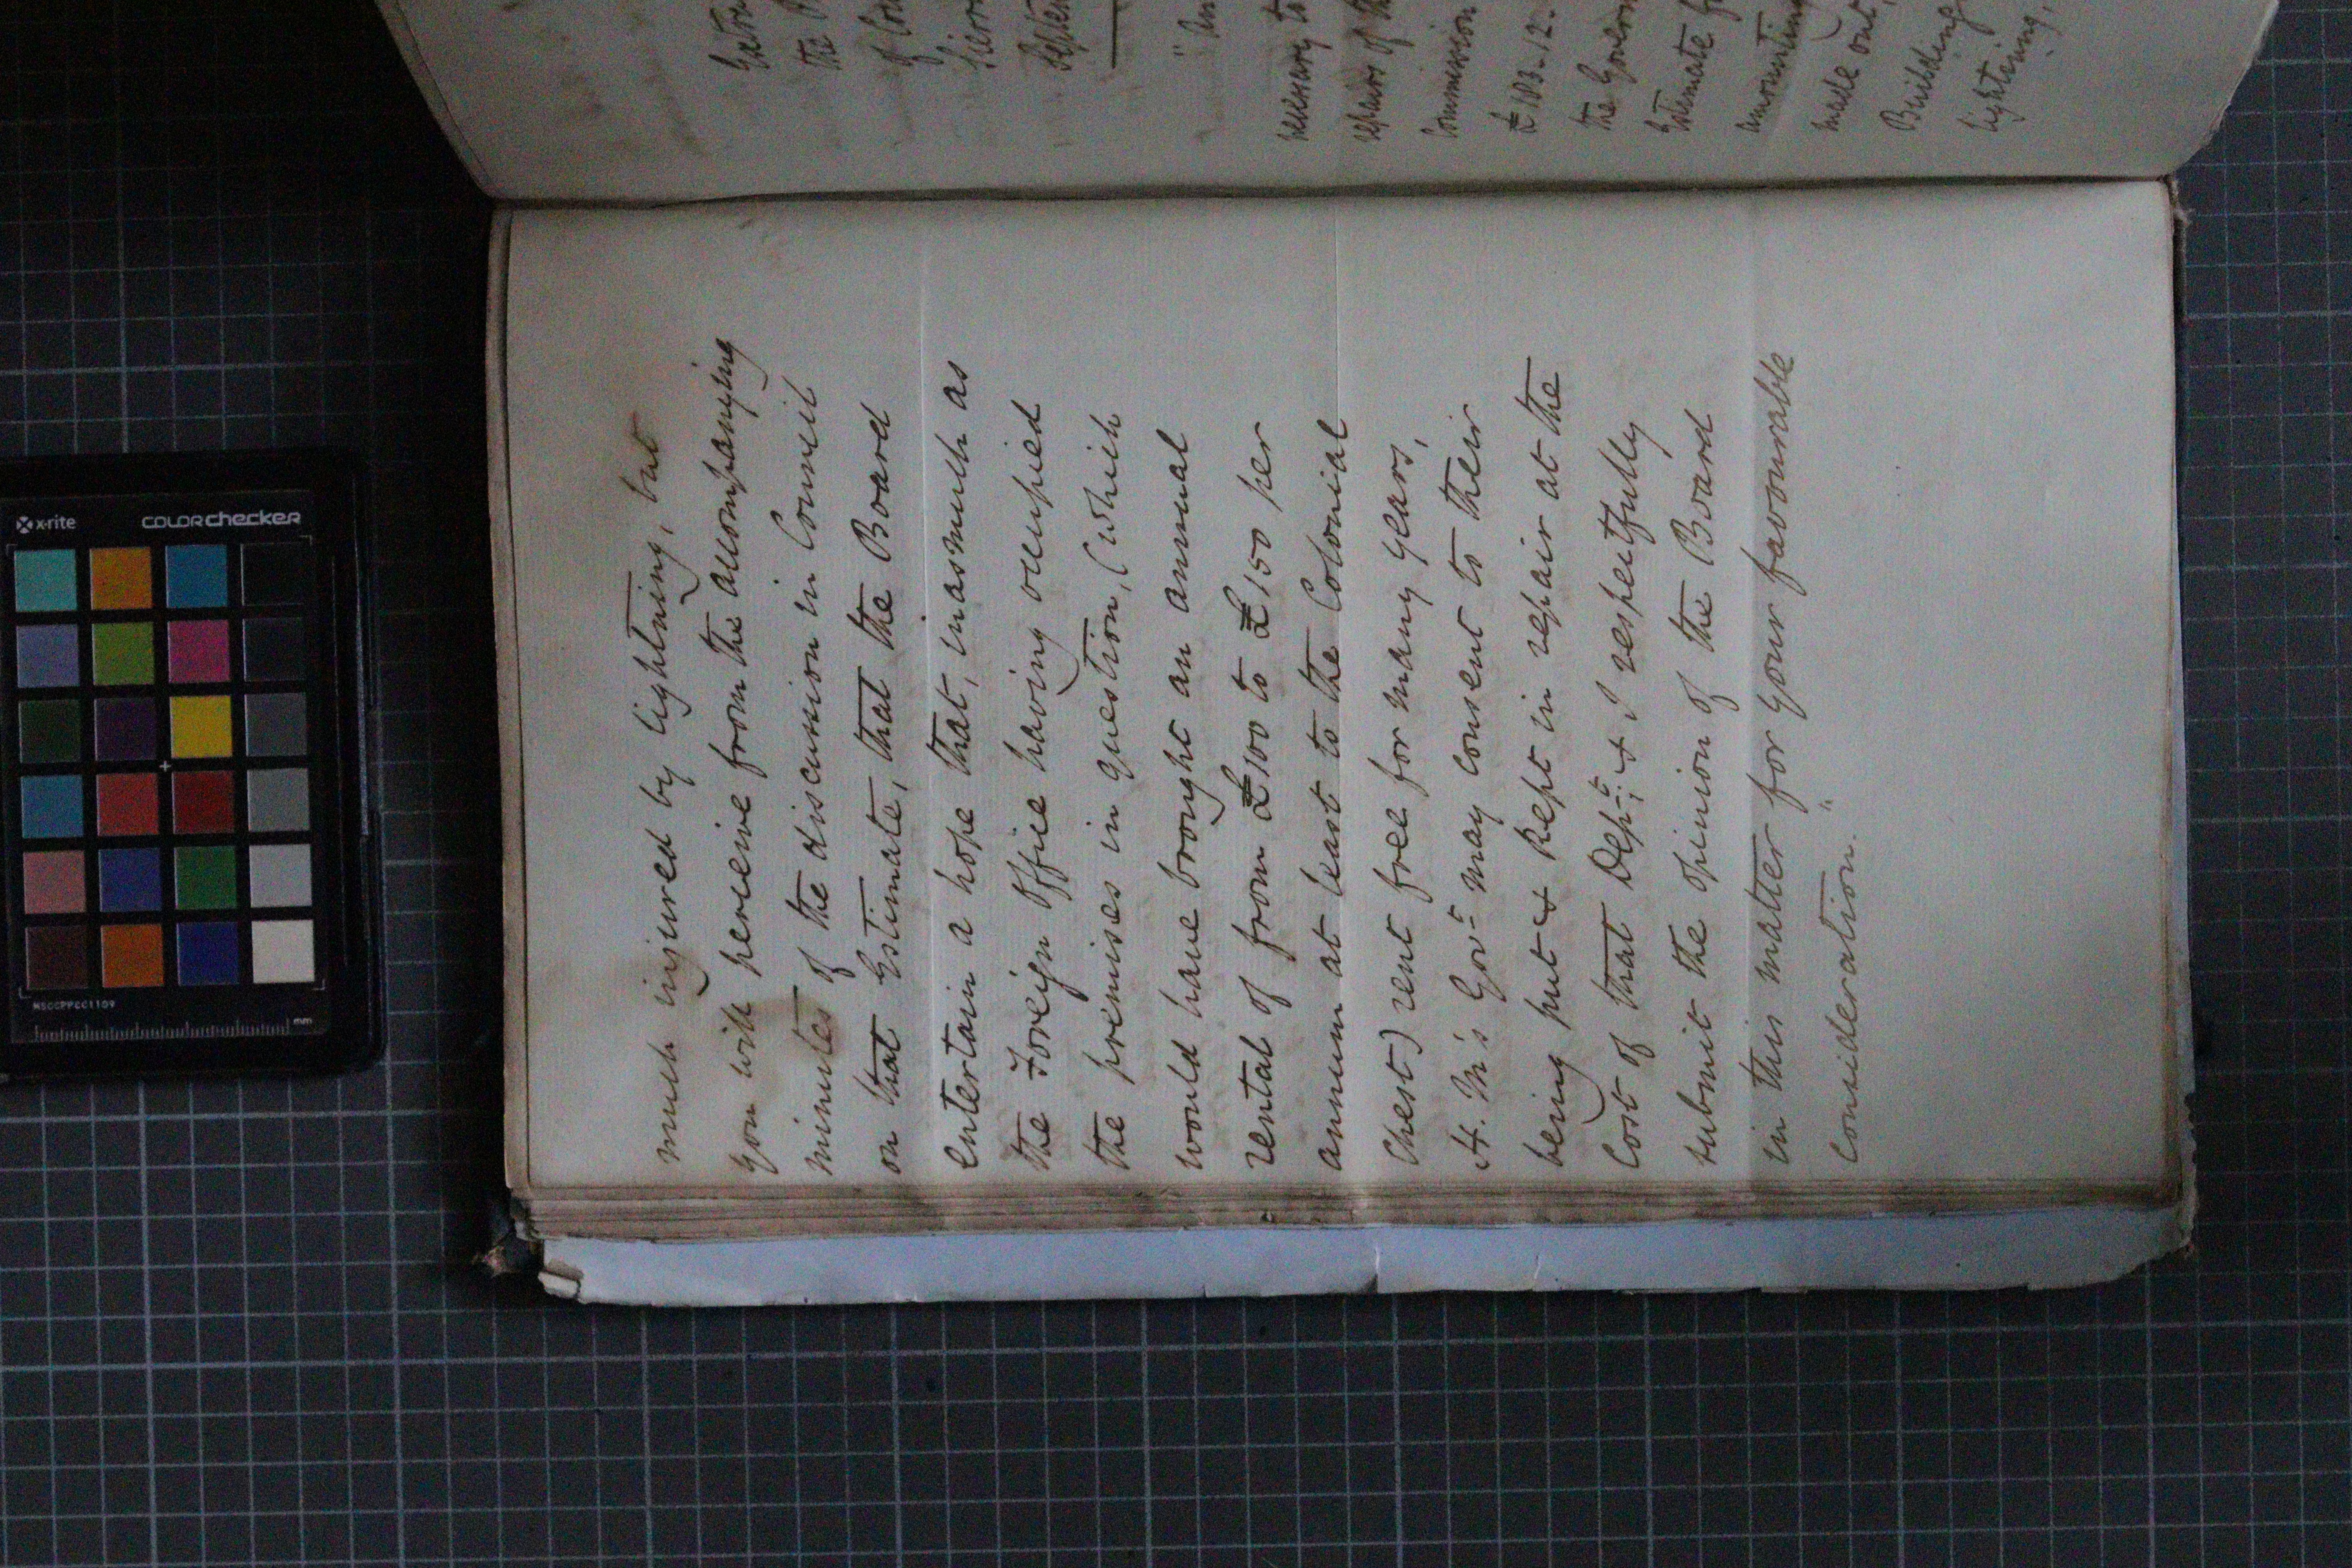 Extra
the
of Con
Sierr
Septem
" An
necessary to
repairs of the
Commission
£183.12.
the Govern
Estimate fo
amounting
made out,
Building
lightning,
much injured by lightning, but
you will perceive from the accompanying
minutes of the discussion in Council
on that Estimate, that the Board
entertain a hope that, inasmuch as
the Foreign Office having occupied
the premises in question, (which
would have brought an annual
rental of from £100 to £150 per
annum at least to the Colonial
Chest) rent free for many years,
H. M's Govt may consent to their
being put & Kept in repair at the
Cost of that Dept; & I respectfully
submit the opinion of the Board
in this matter for your favourable
consideration."
x-rite
COLORchecker
MSCCPPCC1109
mm